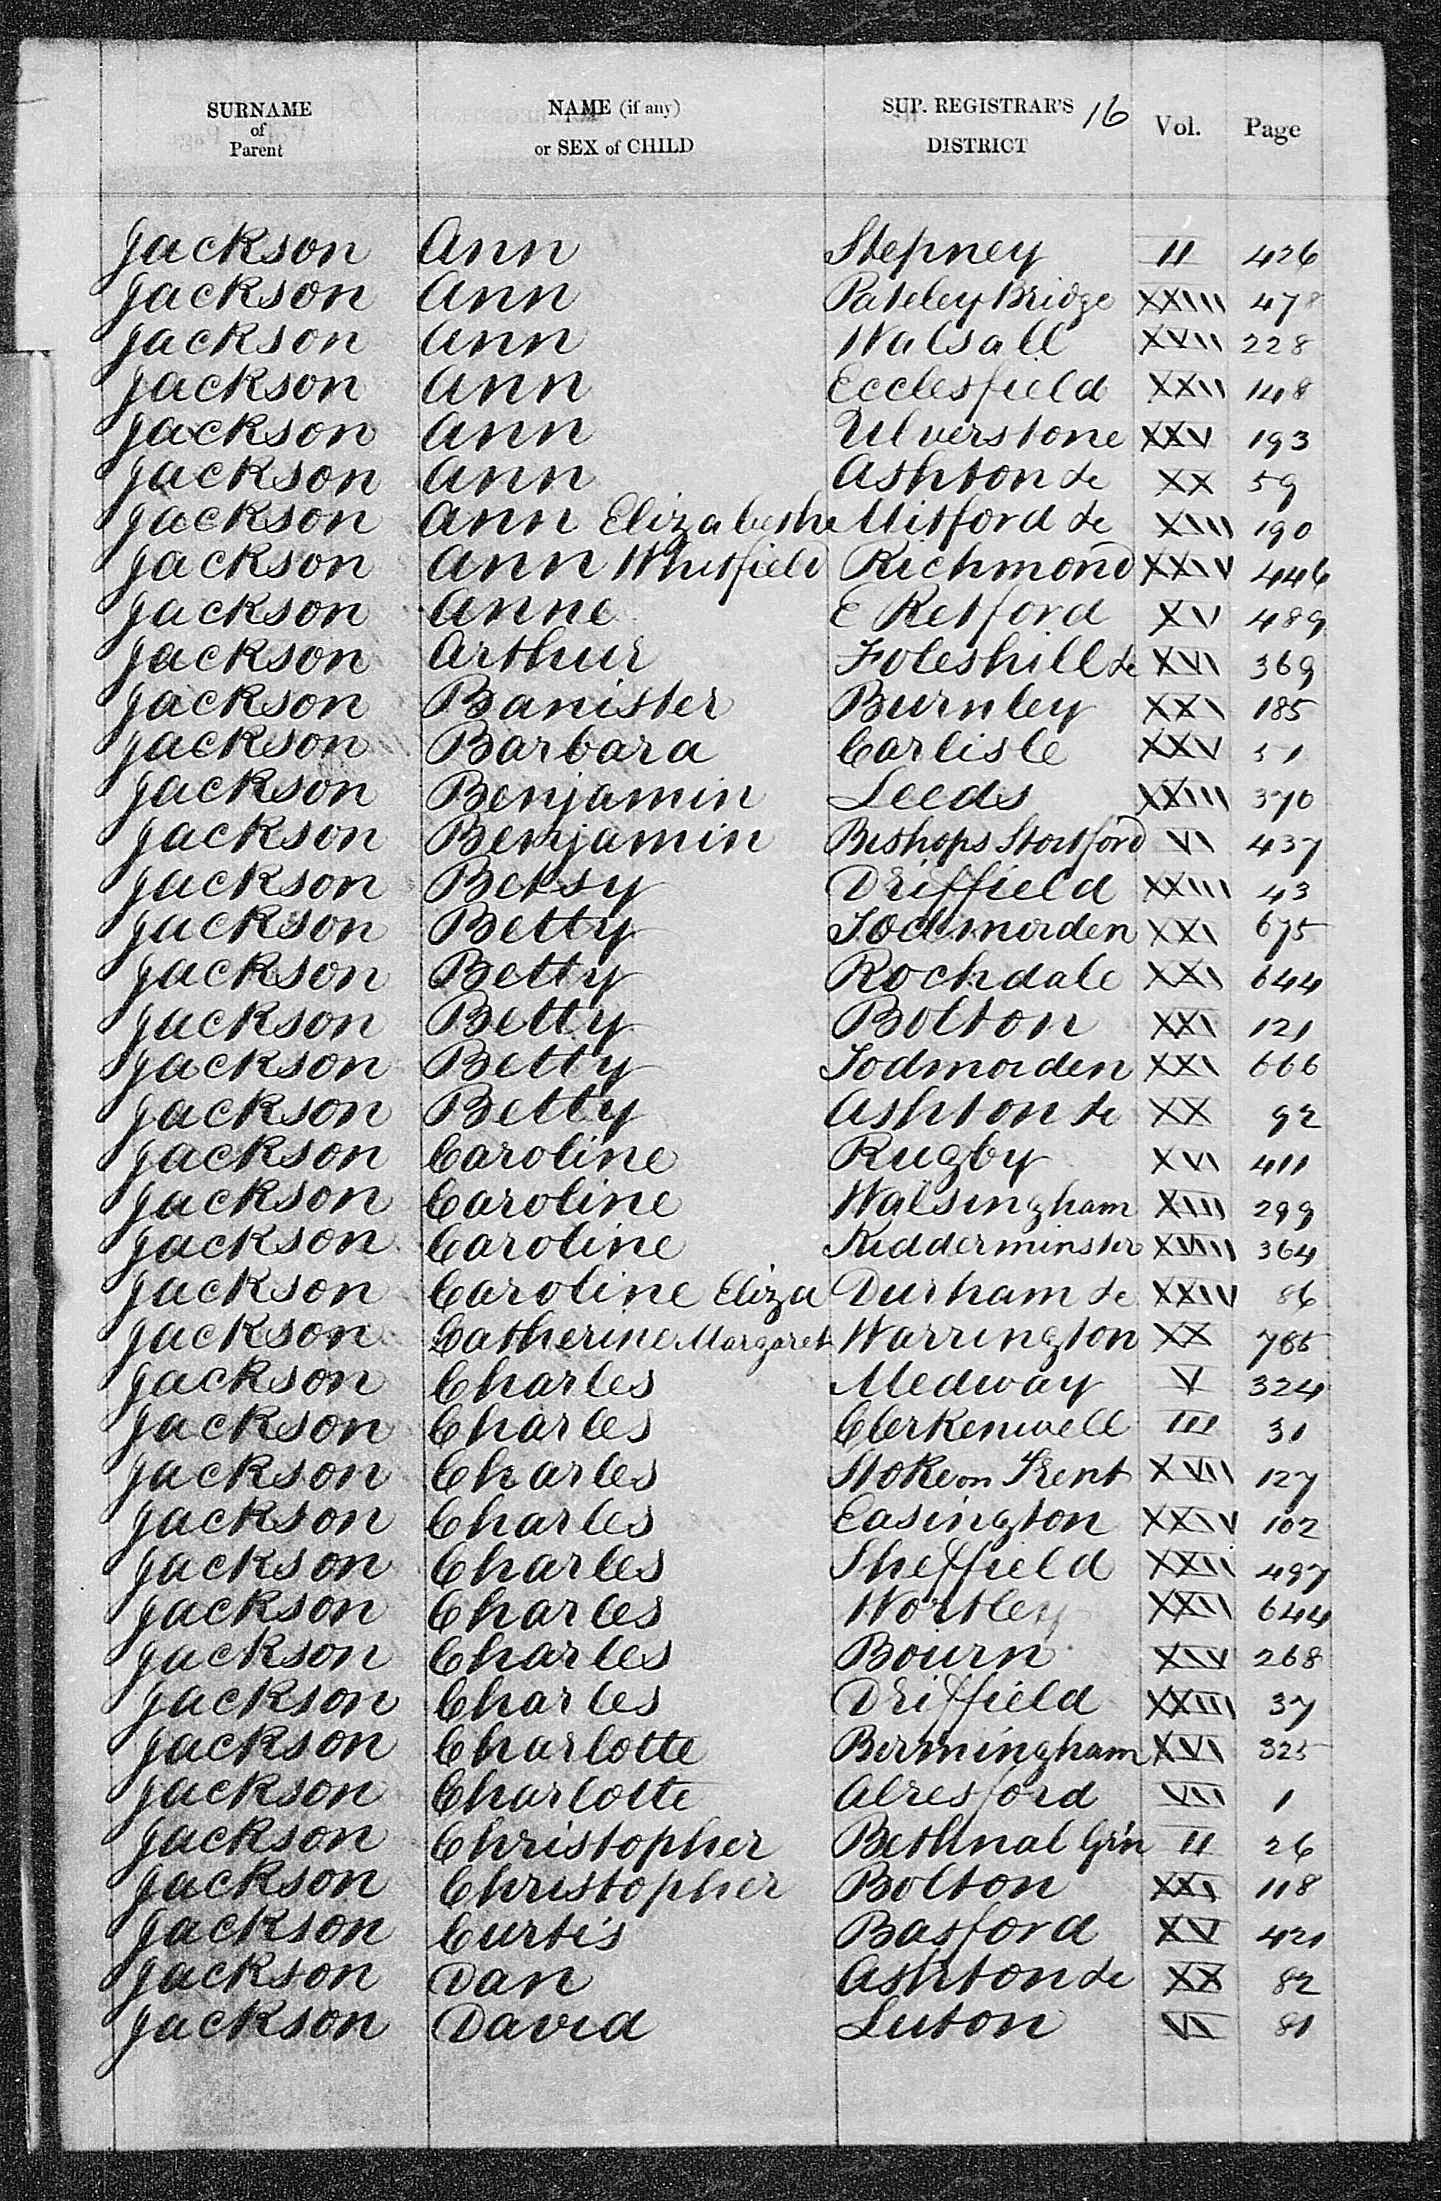 SURNAME of Parent NAME (if any) or SEX of CHILD SUP. REGISTRAR'S DISTRICT 16 Vol. Page
Jackson Ann Stepney II 426
Jackson Ann Pateley Bridge XXIII 478
Jackson Ann Walsall XVII 228
Jackson Ann Ecclesfield XXII 148
Jackson Ann Ulverstone XXV 193
Jackson Ann Ashton &c XX 59
Jackson Ann Elizabeth Mitford &c XIII 190
Jackson Ann Whitfield Richmond XXIV 446
Jackson Anne E Retford XV 489
Jackson Arthur Foleshill &c XVI 369
Jackson Banister Burnley XXI 185
Jackson Barbara Carlisle XXV 51
Jackson Benjamin Leeds XXIII 370
Jackson Benjamin Bishops Stortford VI 437
Jackson Betsy Driffield XXIII 43
Jackson Betty Todmorden XXI 675
Jackson Betty Rochdale XXI 644
Jackson Betty Bolton XXI 121
Jackson Betty Todmorden XXI 666
Jackson Betty Ashton &c XX 92
Jackson Caroline Rugby XVI 411
Jackson Caroline Walsingham XIII 299
Jackson Caroline Kidderminster XVIII 364
Jackson Caroline Eliza Durham &c XXIV 86
Jackson Catherine Margaret Warrington XX 785
Jackson Charles Medway V 324
Jackson Charles Clerkenwell III 31
Jackson Charles Stoke on Trent XVII 127
Jackson Charles Easington XXIV 102
Jackson Charles Sheffield XXII 497
Jackson Charles Wortley XXII 644
Jackson Charles Bourn XIV 268
Jackson Charles Driffield XXIII 37
Jackson Charlotte Birmingham XVI 325
Jackson Charlotte Alresford VII 1
Jackson Christopher Bethnal Grn II 26
Jackson Christopher Bolton XXI 118
Jackson Curtis Basford XV 421
Jackson Dan Ashton &c XX 82
Jackson David Luton VI 81